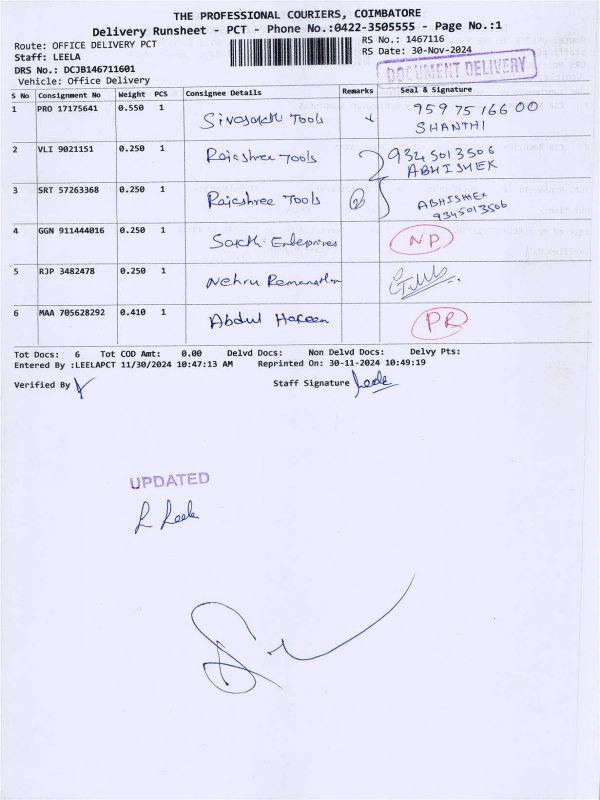 THE PROFESSIONAL COURIERS, COIMBATORE
Delivery Runsheet - PCT - Phone No.:0422-3505555 - Page No.:1
Route: OFFICE DELIVERY PCT
Staff: LEELA
DRS No.: DCJB146711601
Vehicle: Office Delivery
RS No.: 1467116
RS Date: 30-Nov-2024
DOCUMENT DELIVERY
S No Consignment No Weight PCS Consignee Details Remarks Seal & Signature
1 PRO 17175641 0.550 1 Sivasakth Tools 9597516600
SHANTHI
2 VLI 9021151 0.250 1 Rajashree Tools 9345013506
ABHISHEK
3 SRT 57263368 0.250 1 Rajashree Tools 2 ABHISHEK
9345013506
4 GGN 911444016 0.250 1 Sakthi Enterprises NP
5 RJP 3482478 0.250 1 Nehru Ramanathan
6 MAA 705628292 0.410 1 Abdul Hakeem PR
Tot Docs: 6 Tot COD Amt: 0.00 Delvd Docs: Non Delvd Docs: Delvy Pts:
Entered By :LEELAPCT 11/30/2024 10:47:13 AM Reprinted On: 30-11-2024 10:49:19
Verified By Staff Signature Leela
UPDATED
R Leela